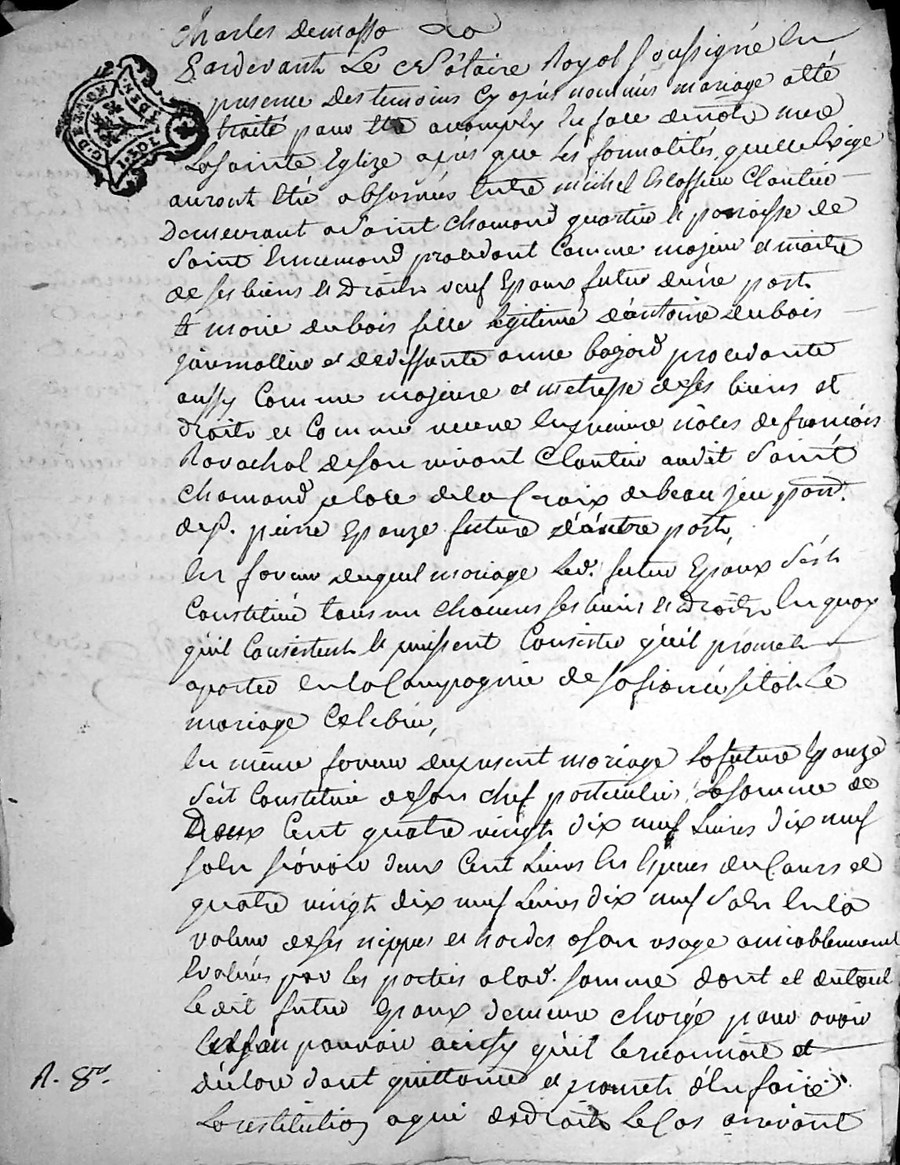 Charles Demasso
Pardevant Le Notaire Royal soussigné En
presence Des temoins Cy apres nommés mariage a été
traité pour Etre acomply En face denotre mere
La sainte Eglize apres que les formalités quelle Exige
auront Eté observés Entre michel Cloutier
Demeurant a Saint Chamond quartier et paroisse de
Saint Ennemond procedant Comme majeur et maitre
de ses biens et Droits veuf Epoux futur dune part
Et marie dubois fille legitime d'antoine dubois
journallier et dedeffunte anne bazard procedante
aussy Comme majeure et metresse deses biens et
droits et Comme veuve En premiere nôces defrancois
Ravachol deson vivant Cloutier audit Saint
Chamond place dela Croix de beaujeu parr.
de St. pierre Epouze future d'autre part,
En faveur duquel mariage Led. futur Epoux s'est
Constitué tous un chacuns ses biens et droits En quoy
qu'il Consistent et puissent Consister qu'il promet
aporter En la Compagnie de sa fiancée sitot Le
mariage Celebré,
En meme faveur dupresent mariage La future Epouze
s'est Constituée deson chef particulier La somme de
Deux Cent quatre vingt dix neuf Livres dix neuf
sols scavoir deux Cent Livres En Especes du Cours et
quatre vingt dix neuf Livres dix neuf sols En la
valeur deses nippes et hardes ason usage amiablement
Evalués par les parties a lad. somme dont et dutout
Ledit futur Epoux demeure chargé pour avoir
pouvoir qu'il le reconnoit et
dont quittance et promet d'En faire
La restitution a qui de droit Le Cas arrivant
A. 8.